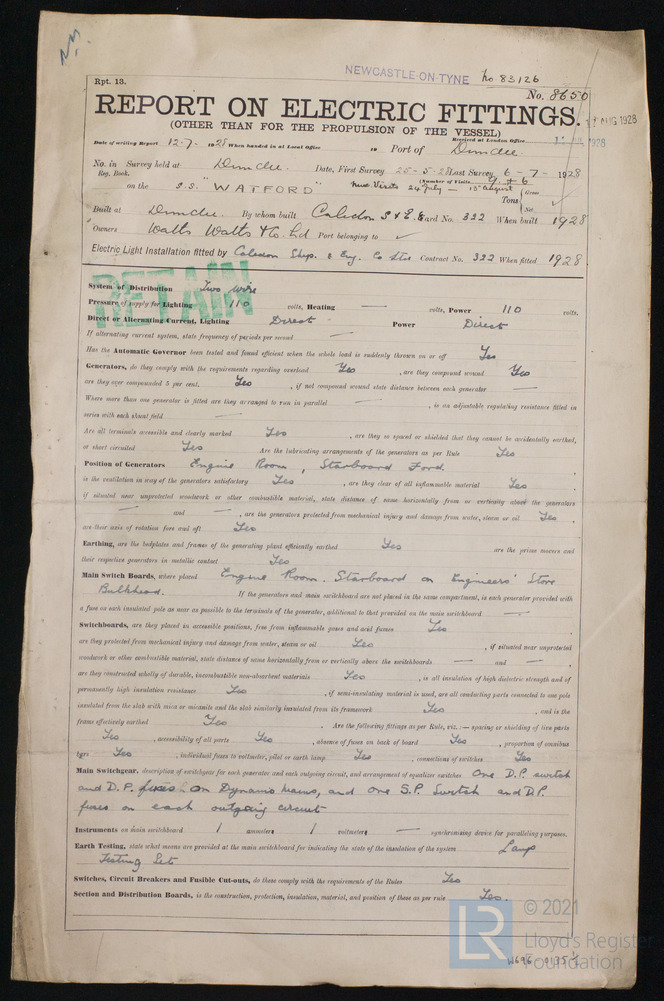 NEWCASTLE-ON-TYNE No 83126
Rpt. 13.
No. 8650
REPORT ON ELECTRIC FITTINGS.
(OTHER THAN FOR THE PROPULSION OF THE VESSEL)
AUG 1928
Date of writing Report 12-7-1928 When handed in at Local Office 19 Port of Dundee Received at London Office
No. in Survey held at Dundee. Date, First Survey 25-5-28 Last Survey 6-7-1928
Reg. Book. (Number of Visits 9 + 6
on the S.S. "WATFORD" Nwc Visits 24 July — 15 August Tons { Gross
Net
Built at Dundee. By whom built Caledon S & E. Co Yard No. 322 When built 1928
Owners Watts Watts & Co. Ltd Port belonging to
Electric Light Installation fitted by Caledon Ship. & Eng. Co Ltd Contract No. 322 When fitted 1928
RETAIN
System of Distribution Two wire
Pressure of supply for Lighting 110 volts, Heating — volts, Power 110 volts.
Direct or Alternating Current, Lighting Direct Power Direct
If alternating current system, state frequency of periods per second —
Has the Automatic Governor been tested and found efficient when the whole load is suddenly thrown on or off Yes
Generators, do they comply with the requirements regarding overload Yes, are they compound wound Yes
are they over compounded 5 per cent. Yes, if not compound wound state distance between each generator —
Where more than one generator is fitted are they arranged to run in parallel —, is an adjustable regulating resistance fitted in
series with each shunt field —
Are all terminals accessible and clearly marked Yes, are they so spaced or shielded that they cannot be accidentally earthed,
or short circuited Yes Are the lubricating arrangements of the generators as per Rule Yes
Position of Generators Engine Room, Starboard Ford.
is the ventilation in way of the generators satisfactory Yes, are they clear of all inflammable material Yes
if situated near unprotected woodwork or other combustible material, state distance of same horizontally from or vertically above the generators
— and —, are the generators protected from mechanical injury and damage from water, steam or oil Yes,
are their axis of rotation fore and aft Yes
Earthing, are the bedplates and frames of the generating plant efficiently earthed Yes are the prime movers and
their respective generators in metallic contact Yes
Main Switch Boards, where placed Engine Room. Starboard on Engineers' Store
Bulkhead. If the generators and main switchboard are not placed in the same compartment, is each generator provided with
a fuse on each insulated pole as near as possible to the terminals of the generator, additional to that provided on the main switchboard —
Switchboards, are they placed in accessible positions, free from inflammable gases and acid fumes Yes,
are they protected from mechanical injury and damage from water, steam or oil Yes, if situated near unprotected
woodwork or other combustible material, state distance of same horizontally from or vertically above the switchboards — and —,
are they constructed wholly of durable, incombustible non-absorbent materials Yes, is all insulation of high dielectric strength and of
permanently high insulation resistance Yes, if semi-insulating material is used, are all conducting parts connected to one pole
insulated from the slab with mica or micanite and the slab similarly insulated from its framework Yes, and is the
frame effectively earthed Yes. Are the following fittings as per Rule, viz.:— spacing or shielding of live parts
Yes, accessibility of all parts Yes, absence of fuses on back of board Yes, proportion of omnibus
bars Yes, individual fuses to voltmeter, pilot or earth lamp Yes, connections of switches Yes
Main Switchgear, description of switchgear for each generator and each outgoing circuit, and arrangement of equalizer switches One D.P. switch
and D.P. fuses on Dynamo mains, and one S.P. Switch and D.P.
fuses on each outgoing circuit
Instruments on main switchboard 1 ammeters 1 voltmeters — synchronising device for paralleling purposes.
Earth Testing, state what means are provided at the main switchboard for indicating the state of the insulation of the system Lamp
Testing Set
Switches, Circuit Breakers and Fusible Cut-outs, do these comply with the requirements of the Rules Yes
Section and Distribution Boards, is the construction, protection, insulation, material, and position of these as per rule Yes.
© 2021
LR Lloyd's Register
Foundation
W696-0135 ½